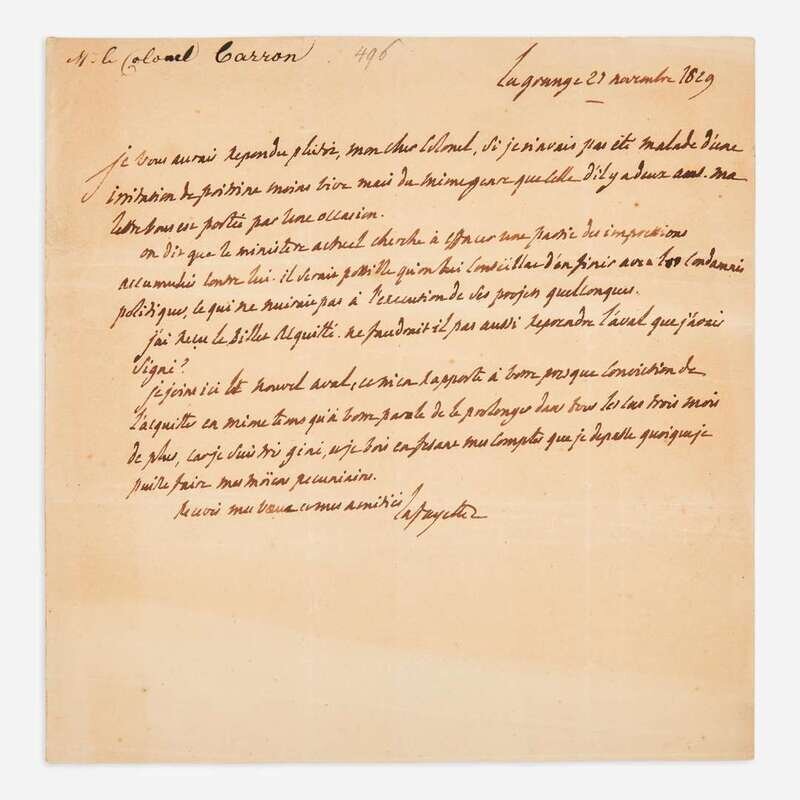 Mr le Colonel Carron 496
La grange 21 novembre 1829
je vous aurais repondu plutot, mon cher Colonel, si je n'avais pas été malade d'une
irritation de poitrine moins vive mais du même genre que celle d'il y a deux ans. ma
lettre vous est portée par une occasion.
on dit que le ministère actuel cherche à effacer une partie des impressions
accumulées contre lui. il serait possible qu'on lui conseillat d'en finir avec les condamnés
politiques, ce qui ne nuirait pas à l'execution de ses projets quelconques.
j'ai reçu le Billet acquitté. ne faudrait il pas aussi reprendre l'aval que j'avais
signé?
je joins ici le nouvel aval, et m'en rapporte à votre presque conviction de
l'acquitter en même tems qu'à votre parole de le prolonger dans tous les cas trois mois
de plus, car je suis très géné, et je vois en fesant mes comptes que je depasse quoique je
puisse faire mes moïens pecuniaires.
Recevés mes vœux et mes amitiés
Lafayette